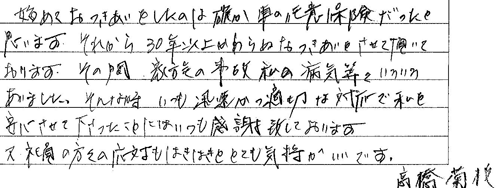 始めておつきあいをしたのは確か車の任意保険だったと
思います。それから30年以上かわらぬおつきあいをさせて頂いて
おります。その間、数多くの事故、私の病気等といろいろ
ありました。そんな時、いつも迅速かつ適切な対応で私を
安心させて下さったことにはいつも感謝致しております
又、社員の方々の応対もはきはきととても気持がいいです。
高橋菊